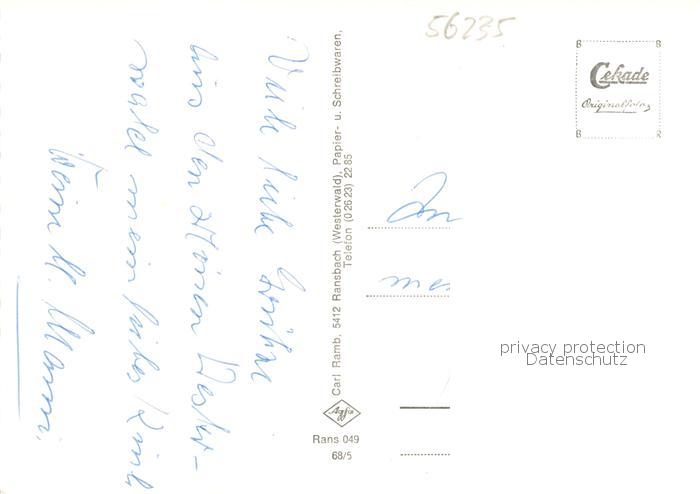 56235
Cekade
Originalfoto
Viele liebe Grüße
aus dem schönen Wester-
wald mein liebes Kind
Deine M. Mammi.
Carl Ramb, 5412 Ransbach (Westerwald), Papier- u. Schreibwaren,
Telefon (0 26 23) 22 85
An
Agfa
Rans 049
68/5
privacy protection
Datenschutz